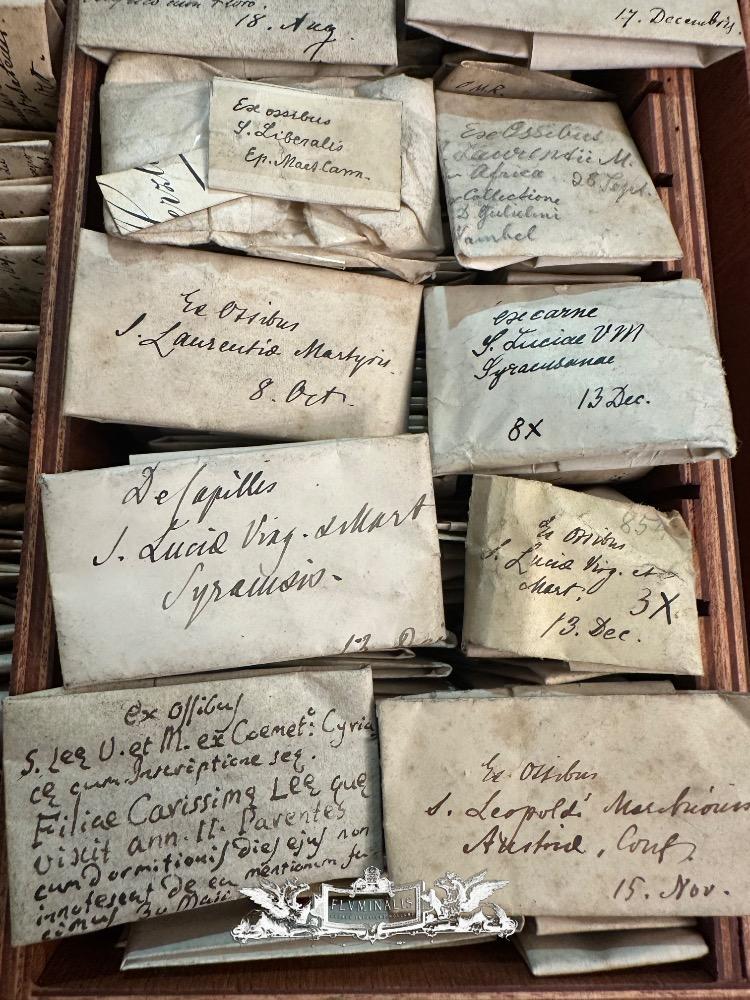 18. Aug.
17. Decembris.
Ex ossibus
S. Liberalis
Ep. Mael Cann.
OMR
Ex Ossibus
Laurentii M.
Africa 28 Sept.
Collectione
D. Gulielmi
Ex Ossibus
S. Laurentiæ Martyris.
8. Oct.
ex carne
S. Luciae VM
Syracusanae
13 Dec.
8X
De Capillis
S. Luciæ Virg. & Mart
Syracusis.
13. Dec
85
Ex Ossibus
S. Luciæ Virg. et
Mart.
3X
13. Dec.
ex ossibus
S. Leę V. et M. ex Coemet: Cyria
cę cum Inscriptione seq.
Filiae Carissimę Leę quę
vixit ann. II. Parentes
cum dormitionis dies ejus non
innotescat de ea mentionem fa-
cimus
Ex Ossibus
S. Leopoldi Marchionis
Austriæ, Conf.
15. Nov.
FLVMINALIS